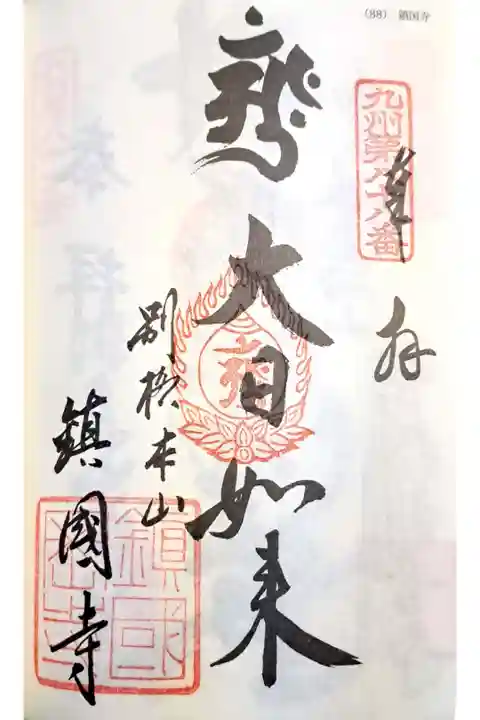 (88) 鎮国寺
九州第八十八番
奉拝
大日如来
別格本山
鎮國寺